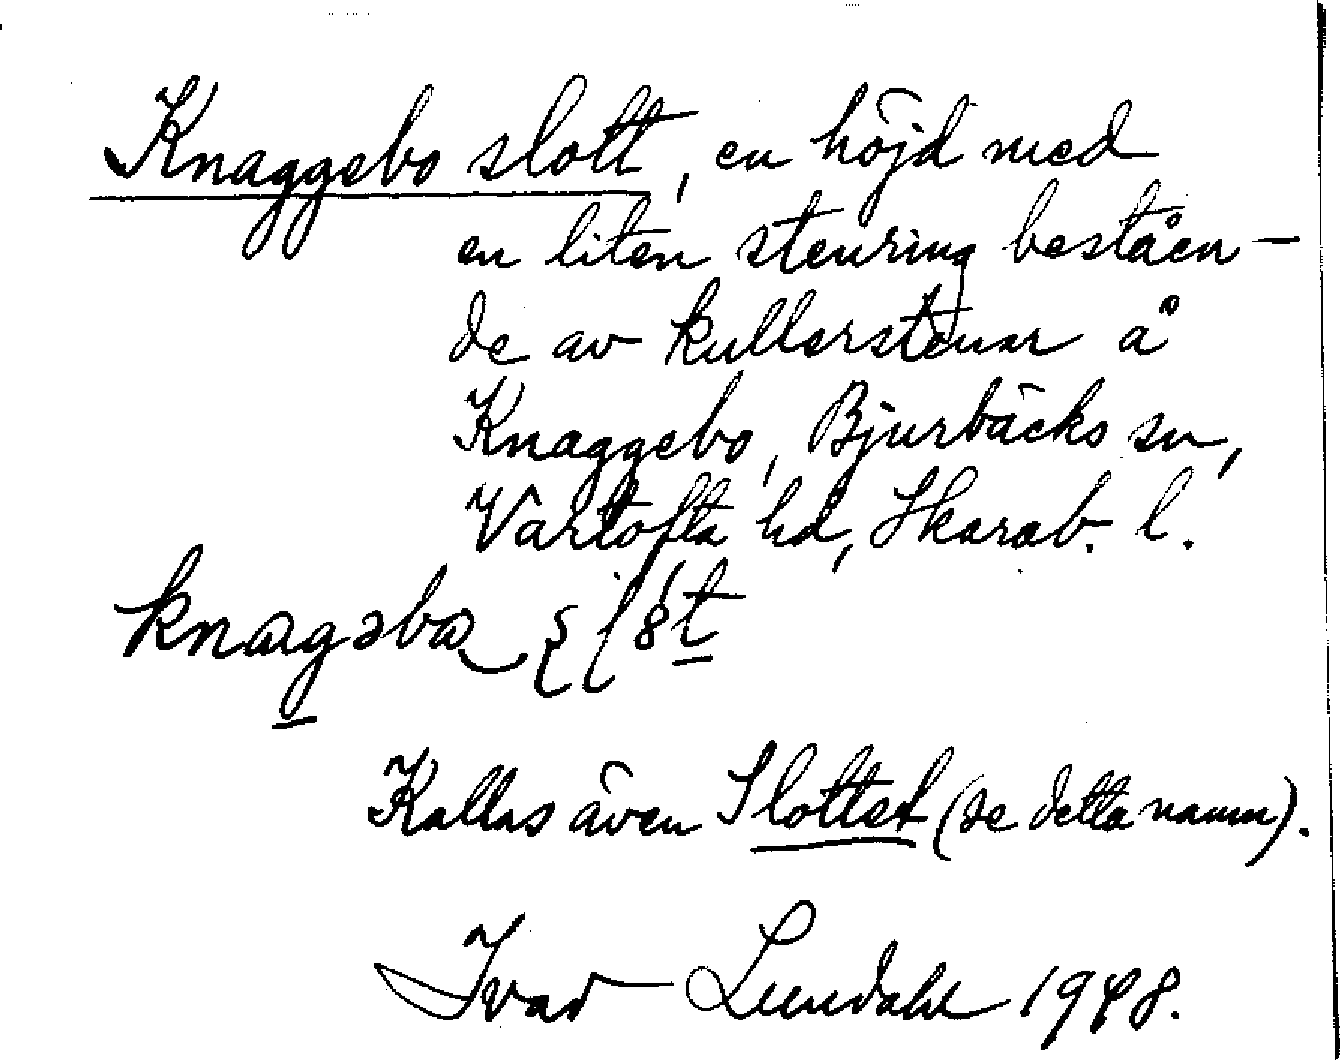 Knaggebo slott, en höjd med
en liten stenring beståen-
de av kullerstenar å
Knaggebo, Bjurbäcks sn,
Vartofta hd, Skarab. l.
Kallas även Slottet (se detta namn).
Ivar Lundahl 1948.